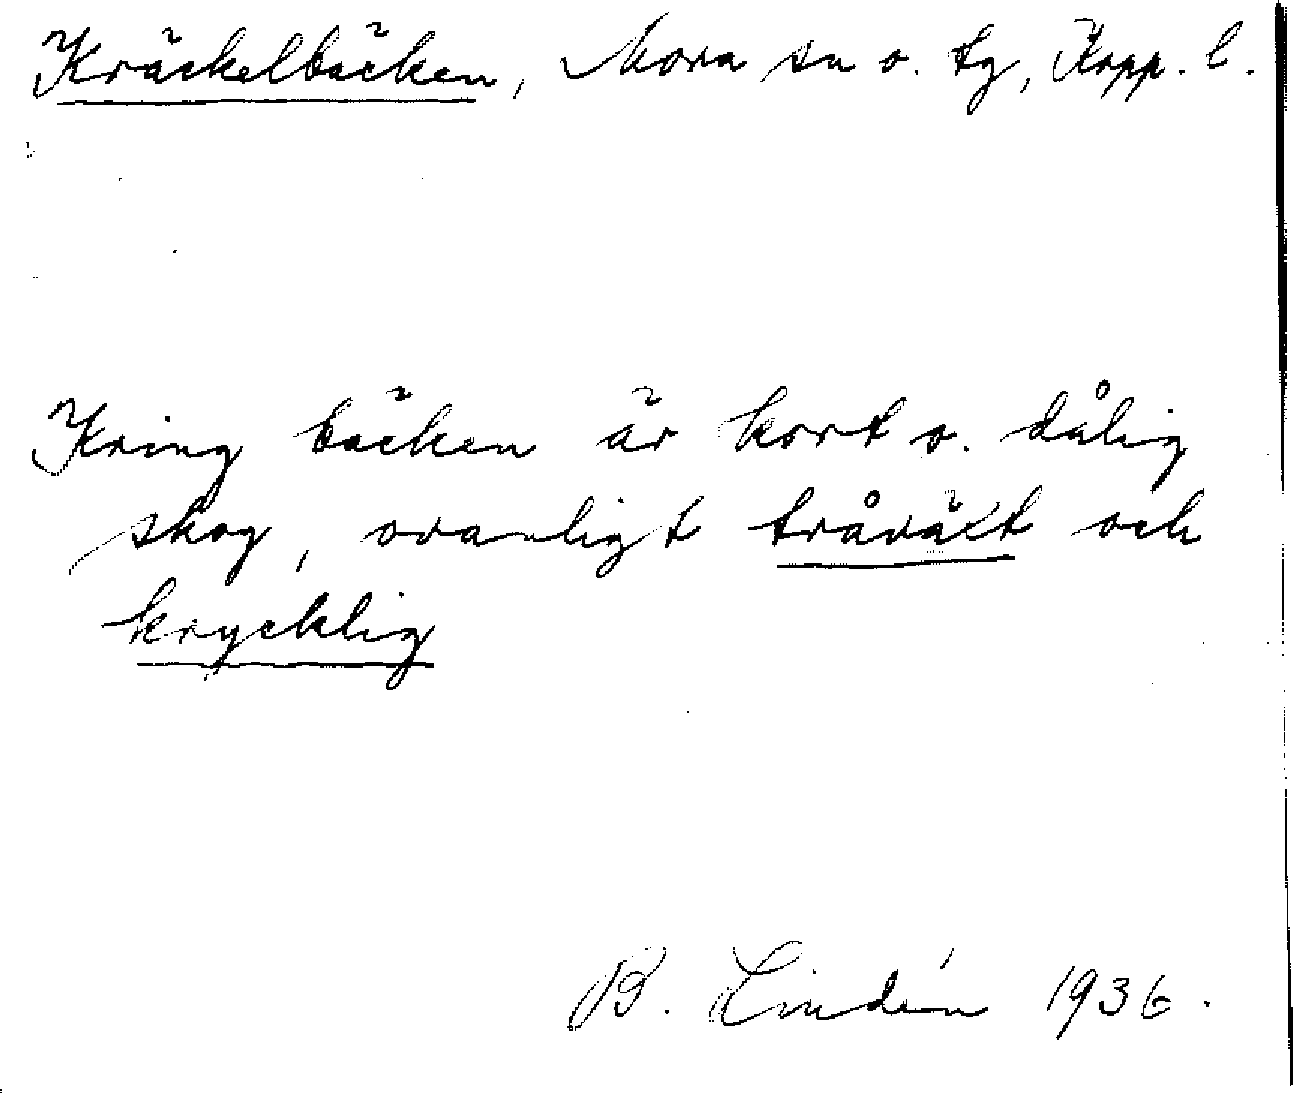 Kräckelbäcken, Mora sn o. tg, Kopp. l.
Kring bäcken är kort o. dålig
skog, ovanligt tråväxt och
krycklig
B. Lindén 1936.